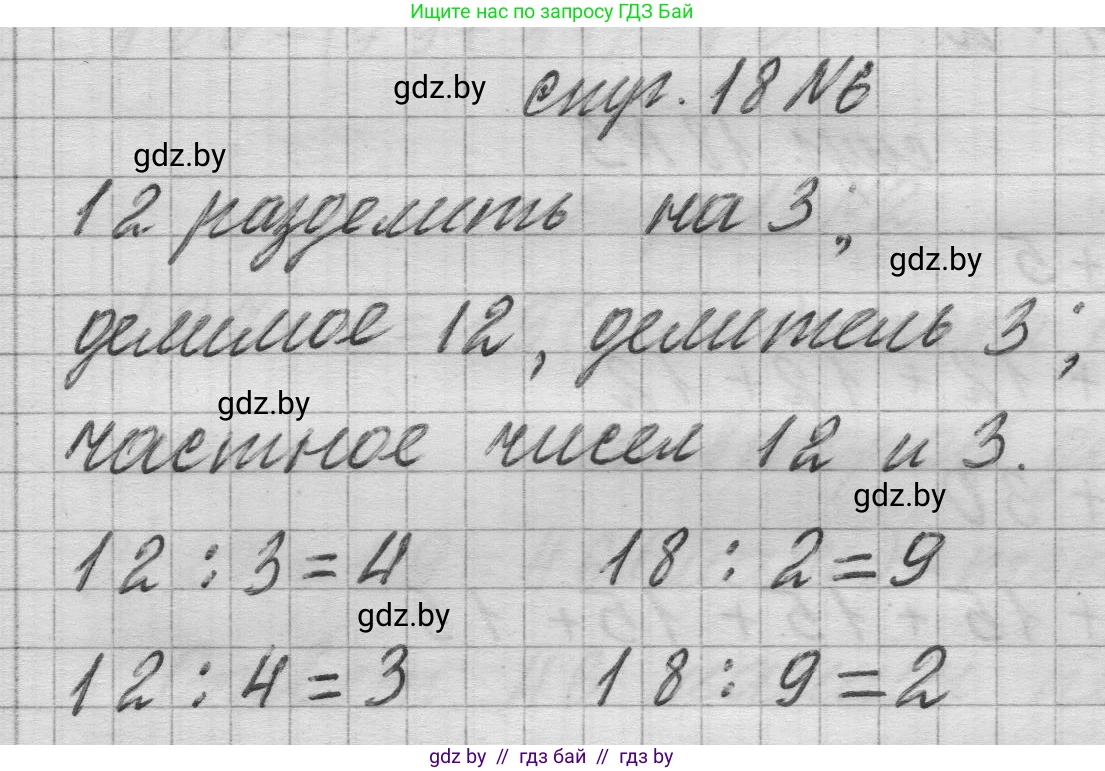 Ищите нас по запросу ГДЗ Бай
gdz.by
стр. 18 №6
gdz.by
12 разделить на 3;
gdz.by
делимое 12, делитель 3;
gdz.by
частное чисел 12 и 3.
gdz.by
12 : 3 = 4 18 : 2 = 9
gdz.by
12 : 4 = 3 18 : 9 = 2
gdz by // гдз бай // гдз by